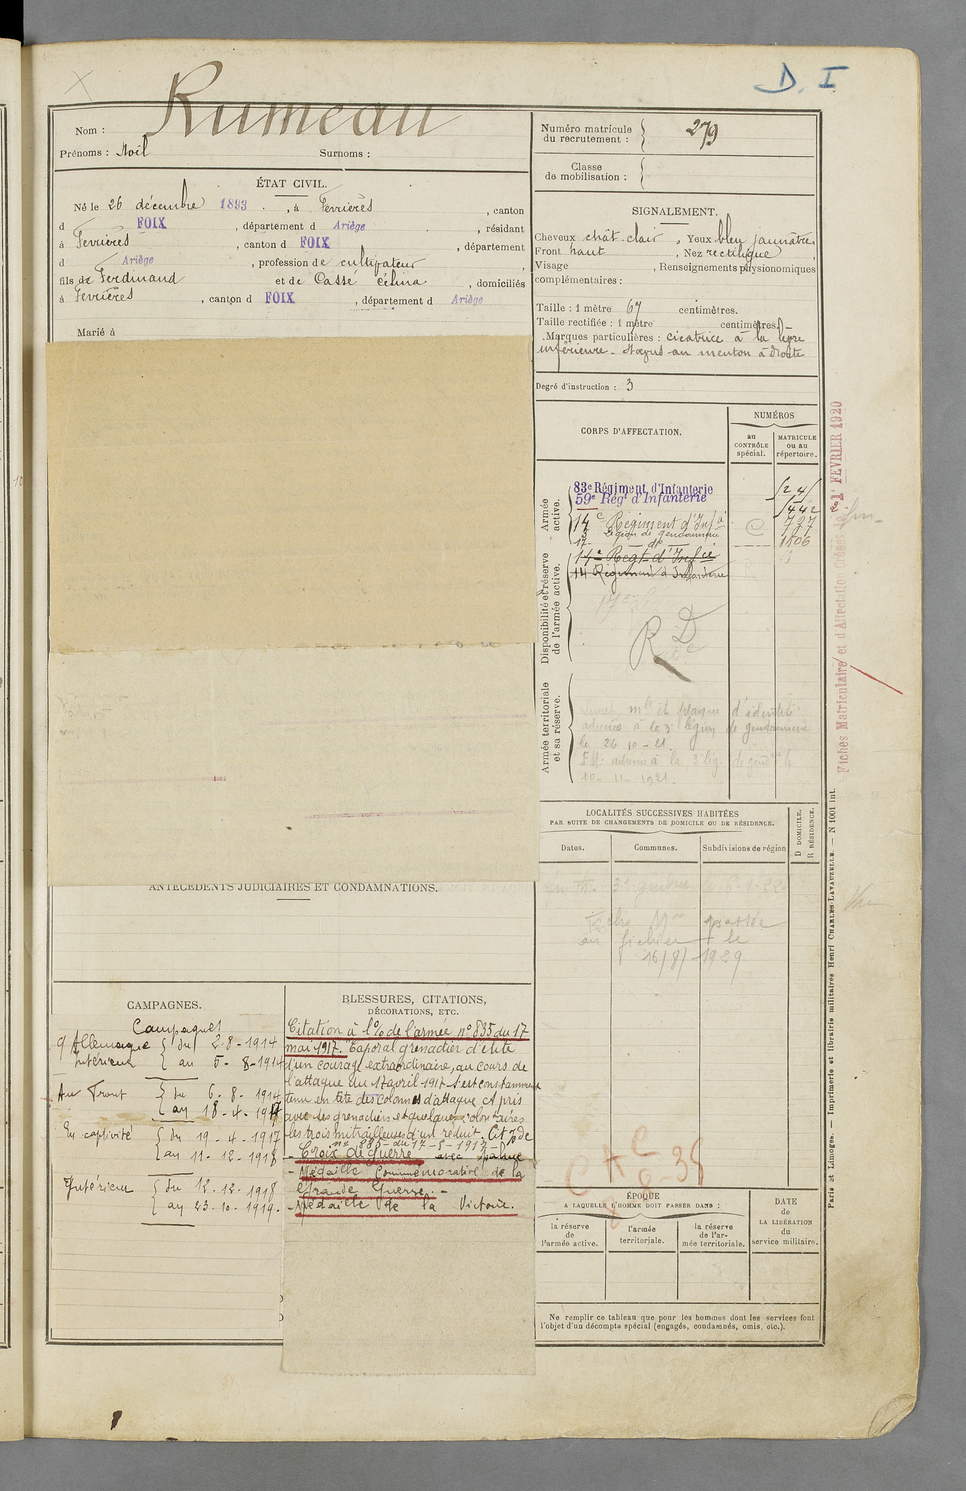 D. I
Rumeau
Nom :
Prénoms : Noël Surnoms :
Numéro matricule du recrutement : 279
Classe de mobilisation :
ÉTAT CIVIL.
Né le 26 décembre 1893, à Ferrières, canton
d FOIX, département d Ariège, résidant
à Ferrières, canton d FOIX, département
d Ariège, profession de cultivateur,
fils de Ferdinand et de Cassé Célina, domiciliés
à Ferrières, canton d FOIX, département d Ariège
Marié à
SIGNALEMENT.
Cheveux chât. clair, Yeux bleu jaunâtre,
Front haut, Nez rectiligne,
Visage , Renseignements physionomiques
complémentaires :
Taille : 1 mètre 67 centimètres.
Taille rectifiée : 1 mètre centimètres.
Marques particulières : cicatrice à la lèvre
inférieure - au menton à droite
Degré d'instruction : 3
CORPS D'AFFECTATION.
NUMÉROS
au CONTRÔLE spécial.
MATRICULE ou au répertoire.
Armée active.
83e Régiment d'Infanterie
59e Régt d'Infanterie
14e Régiment d'Infie 727
Légion de gendarmerie
17e - do - 1506
Disponibilité et réserve de l'armée active.
14e Regt d'Infie
14 Régiment d'Infanterie
R D
Armée territoriale et sa réserve.
mle et plaque d'identité
adressés à la 3e légion de gendarmerie
le 26-10-21
10-11-1921.
LOCALITÉS SUCCESSIVES HABITÉES
PAR SUITE DE CHANGEMENTS DE DOMICILE OU DE RÉSIDENCE.
Dates.
Communes.
Subdivisions de région
D DOMICILE.
R RÉSIDENCE.
au fichier le
16/8/1929
ANTÉCÉDENTS JUDICIAIRES ET CONDAMNATIONS.
CAMPAGNES.
Campagnes
c/ Allemagne du 2-8-1914
Intérieur au 5-8-1914
Au Front du 6-8-1914
au 18-4-1917
En captivité du 19-4-1917
au 11-12-1918
Intérieur du 12-12-1918
au 23-10-1919.
BLESSURES, CITATIONS,
DÉCORATIONS, ETC.
Citation à l'o/ de l'armée n° 835 du 17
mai 1917. Caporal grenadier d'élite
d'un courage extraordinaire, au cours de
l'attaque du 17 avril 1917 s'est constamment
tenu en tête des colonnes d'attaque, a pris
avec des grenadiers et quelques volontaires
les trois mitrailleuses d'un réduit.
n° 835 du 17-5-1917
- Croix de Guerre avec palme
- Médaille Commémorative de la
Grande Guerre. -
- Médaille de la Victoire.
CAC
6-38
ÉPOQUE
A LAQUELLE L'HOMME DOIT PASSER DANS :
la réserve de l'armée active.
l'armée territoriale.
la réserve de l'armée territoriale.
DATE de LA LIBÉRATION du service militaire.
Ne remplir ce tableau que pour les hommes dont les services font
l'objet d'un décompte spécial (engagés, condamnés, omis, etc.).
Fiches Matriculaire et d'Affectation Créées le 21 FEVRIER 1920
Paris et Limoges. — Imprimerie et librairie militaires Henri CHARLES-LAVAUZELLE. — N 1001 int.